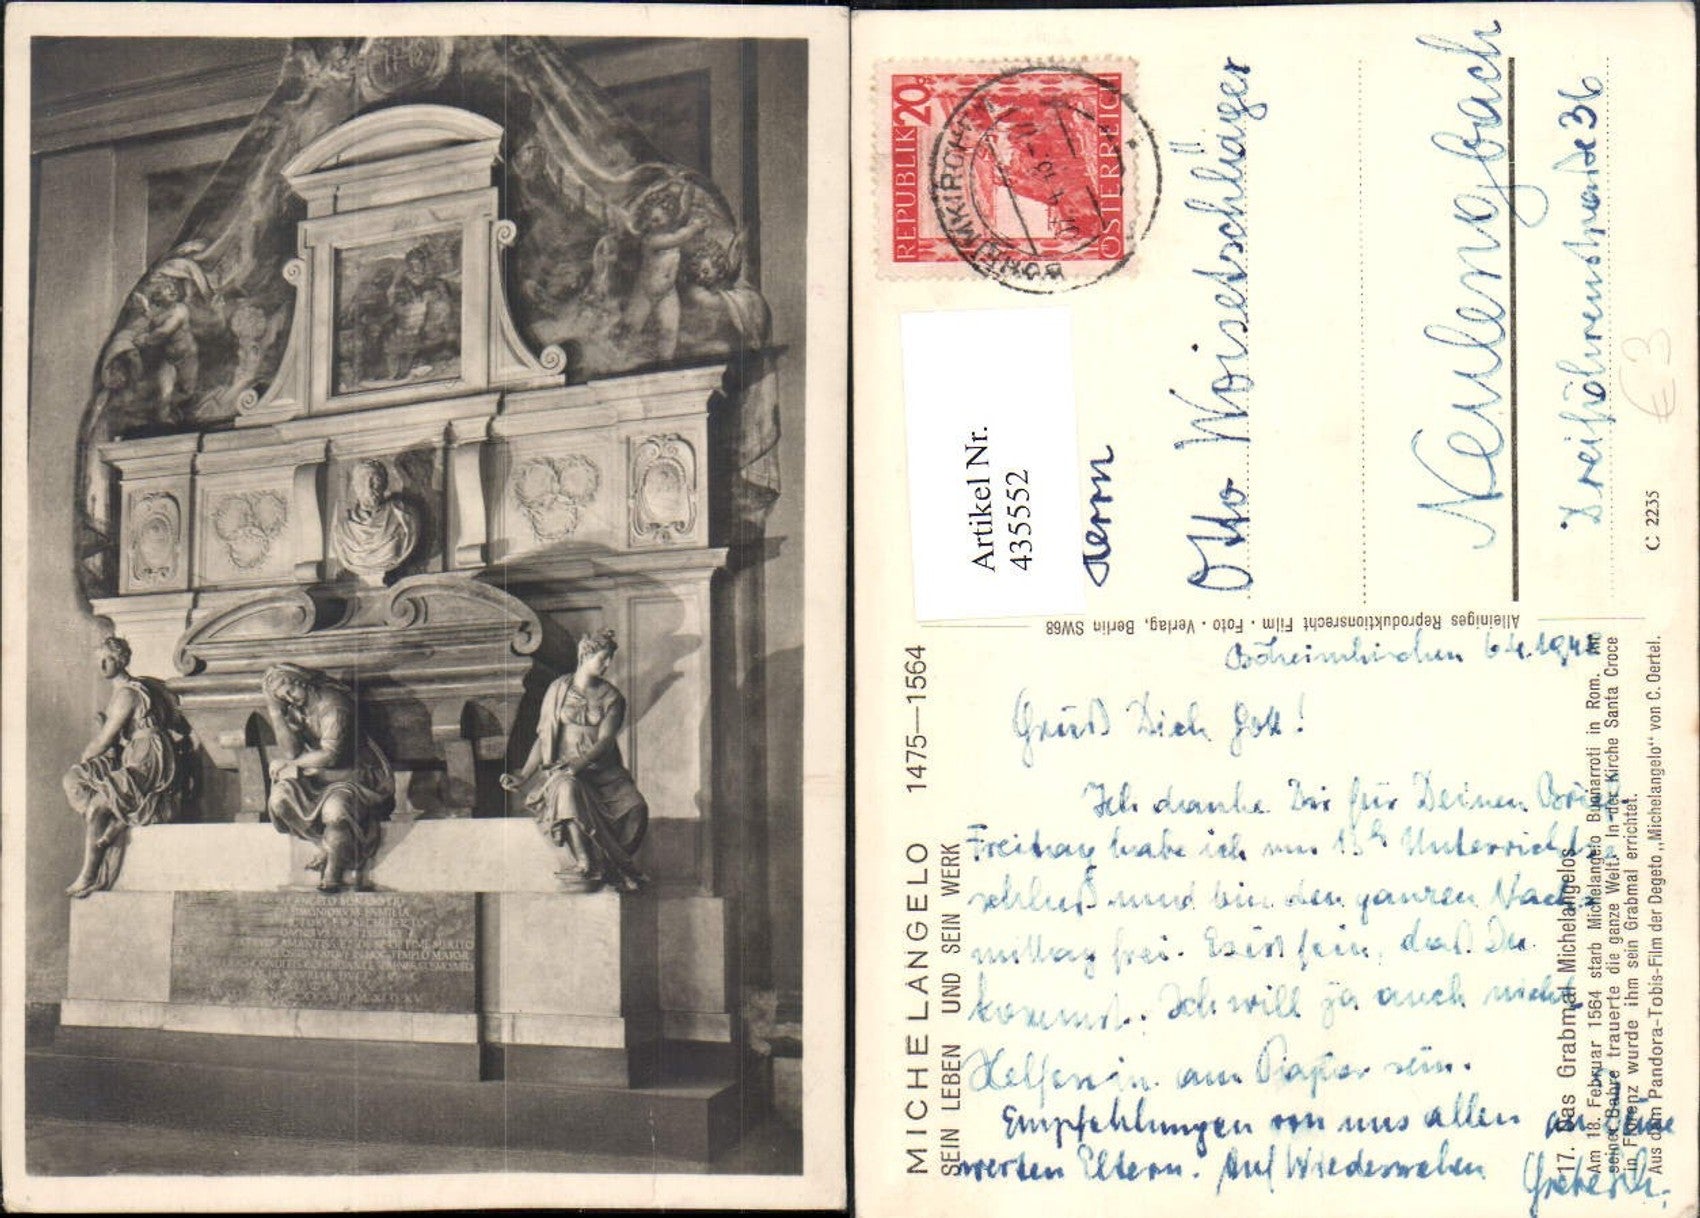 REPUBLIK ÖSTERREICH
20
BÖHEIMKIRCHEN
Artikel Nr.
435552
Herrn
Otto Woisetschläger
Neulengbach
Dreiföhrenstraße 36
€ 3
C 2235
Alleiniges Reproduktionsrecht Film · Foto · Verlag, Berlin SW68
MICHELANGELO 1475—1564
SEIN LEBEN UND SEIN WERK
Böheimkirchen 6.4.
Grüß Dich Gott!
Ich danke Dir für Deinen Brief.
Freitag habe ich um 13h Unterrichts-
schluß und bin den ganzen Nach-
mittag frei. Es ist fein, daß Du
kommst. Ich will ja auch nicht
Helferin am Papier sein.
Empfehlungen von uns allen an Deine
werten Eltern. Auf Wiedersehen
17. Das Grabmal Michelangelos
Am 18. Februar 1564 starb Michelangelo Buonarroti in Rom. An
seiner Bahre trauerte die ganze Welt. In der Kirche Santa Croce
in Florenz wurde ihm sein Grabmal errichtet.
Aus dem Pandora-Tobis-Film der Degeto „Michelangelo“ von C. Oertel.